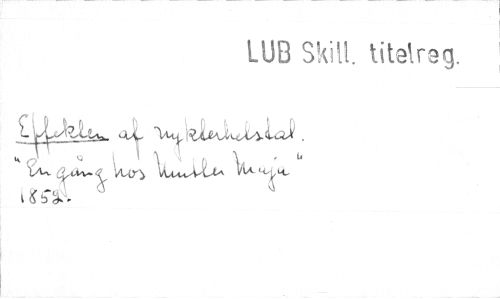 LUB Skill. titelreg.
Effekten af nykterhetstal.
"En gång hos Mutler Maja"
1852.